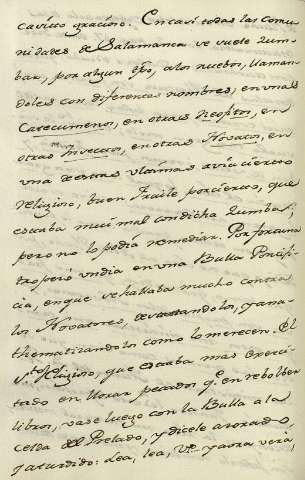 cavitto gracioso. En casi todas las comu
nidades de Salamanca se suele zum
bar, por algun tpo, a los nuebos, llaman
doles con diferentes nombres, en unas
Catecumenos, en otras Neofitos, en
otras Invectos, en otras Novatos, en
una de estas ultimas avia cierto
religioso, buen fraile por cierto, que
estaba mui mal con dicha zumba,
pero no lo podia remediar. Por fortuna
tropezó un dia en una Bulla Pontifi
cia, en que se hablaba mucho contra
los Novatores, detestandolos, y ana-
thematizandolos como lo merecen. El
Sto. Religioso, que estaba mas exerci
tado en llorar pecados q.e en rebolber
libros, vase luego con la Bulla a la
celda del Prelado, y dicele
y aturdido: Lea, lea, y aora verá,